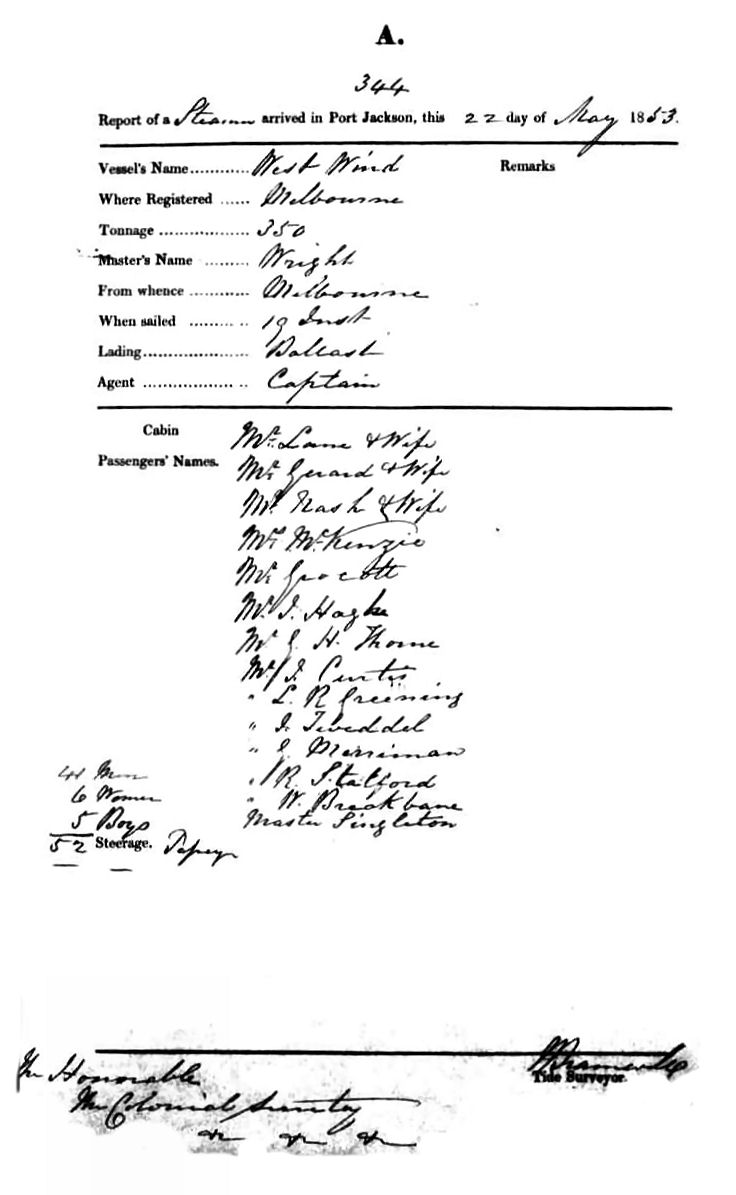 A.
344
Report of a Steamer arrived in Port Jackson, this 22 day of May 1853.
Vessel's Name............ West Wind Remarks
Where Registered ...... Melbourne
Tonnage .................. 350
Master's Name ......... Wright
From whence ............ Melbourne
When sailed ......... .. 19 Inst
Lading..................... Ballast
Agent .................. .. Captain
Cabin
Passengers' Names.
Mr. Lane & Wife
Mr. Gerard & Wife
Mr. Nash & Wife
Mr. McKenzie
Mr. Grocott
Mr. J. Hagke
Mr. G. H. Thorne
Mr. J. Curtis
" L. R Greening
" J. Tweddel
" J. Merriman
" R. Stafford
" W. Breakbane
Master Singleton
41 Men
6 Women
5 Boys
52 Steerage.
The Honorable
Tide Surveyor.
The Colonial Secretary
&c &c &c